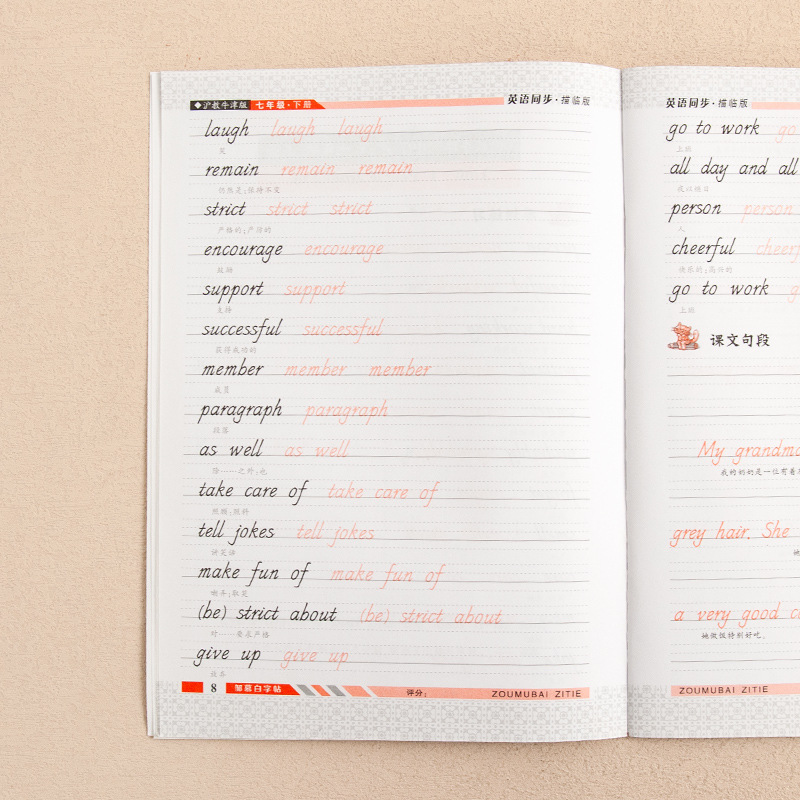 ◆沪教牛津版 七年级·下册 英语同步·描临版
laugh laugh laugh
笑
remain remain remain
仍然是;保持不变
strict strict strict
严格的;严厉的
encourage encourage
鼓励
support support
支持
successful successful
获得成功的
member member member
成员
paragraph paragraph
段落
as well as well
除……之外;也
take care of take care of
照顾;照料
tell jokes tell jokes
讲笑话
make fun of make fun of
嘲弄;取笑
(be) strict about (be) strict about
对……要求严格
give up give up
放弃
8 邹慕白字帖 评分: ZOUMUBAI ZITIE
英语同步·描临版
go to work go
上班
all day and all
person person
人
cheerful cheerf
快乐的;高兴的
go to work g
上班
课文句段
My grandmo
我的奶奶是一位有着
grey hair. She
她
a very good co
她做饭特别好吃。
ZOUMUBAI ZITIE